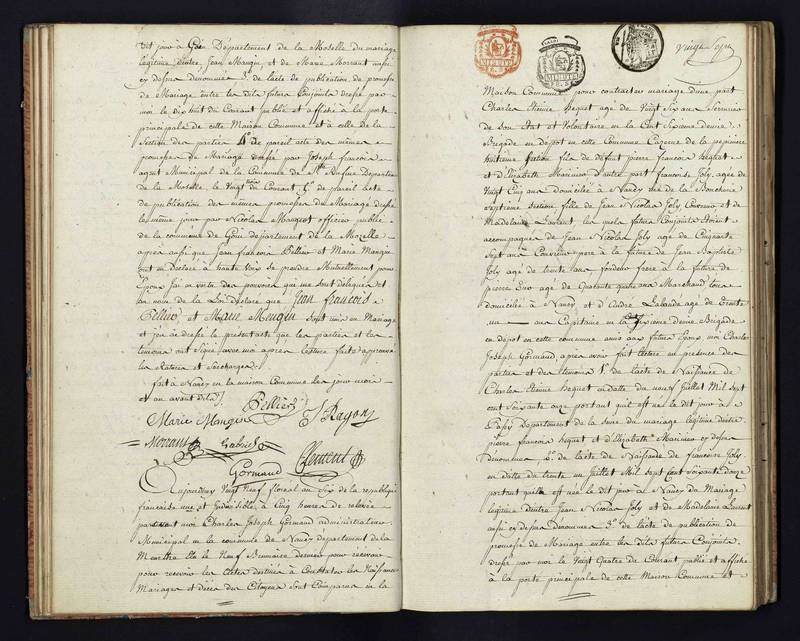 dit jour à Gou Département de la Moselle du mariage
légitime d'entre Jean Mangin et de Marie Morrant aussi
cy dessus dénommés 3° de l'acte de publication de promesse
de Mariage entre les dits futurs Conjoints dressé par
moi le dix huit du Courant publié et affiché à la porte
principale de cette Maison Commune et à celle de la
Section des parties 4° de pareil acte des mêmes
promesses de Mariage dressé par Joseph francois
agent Municipal de la Commune de Ste Rufine Département
de la Moselle, le Vingt du Courant 5° de pareil acte
de publication des mêmes promesses de Mariage dressé
le même jour par Nicolas Mangeot officier public
de la commune de Gou département de la Mozelle
après aussi que Jean francois Pellier et Marie Mangin
ont eu déclaré à haute voix se prendre Mutuellement pour
Epoux j'ai en vertu des pouvoirs qui me sont délégués et
au nom de la Loi déclaré que Jean francois
Pellier et Marie Mangin sont unis en Mariage
et j'ai dressé le présent acte que les parties et les
témoins ont signé avec moi après lecture faite approuvé
les Ratures et Surcharges
fait à Nancy en la maison Commune les jour mois
et an avant dits
Pellier
Marie Mangin J Rayon
Morrant Gabriel Clement
Gormand
Aujourdhuy Vingt Neuf floréal an Six de la république
française une et Indivisible, à Cinq heures de relevée
pardevant moi Charles Joseph Gormand administrateur
Municipal de la commune de Nancy département de la
Meurthe élu le Neuf Brumaire dernier pour recevoir
pour recevoir les actes destinés à Constater les Naissances
Mariages et décès des Citoyens Sont Comparus en la
Maison Commune pour contracter mariage d'une part
Charles Etienne hequet agé de Vingt Six ans
de Son Etat et Volontaire en la Cent Sixieme demie
Brigade en dépot en cette Commune Caserne de la pepiniere
huitieme Section fils de défunt pierre francois hequet
et d'Elizabeth D'autre part francoise Joly agée de
Vingt Cinq ans domiciliée à Nancy rue de la Boucherie
Septieme Section fille de Jean Nicolas Joly Couvreur et de
Madelaine Laurent les quels futurs Conjoints étoient
accompagnés de Jean Nicolas Joly agé de Cinquante
Sept ans Couvreur père à la future de Jean Baptiste
Joly agé de trente ans fondeur frere à la future de
pierre agé de Quarante quatre ans Marchand tous
domiciliés à Nancy et d'André Lalande agé de trente
un ans Capitaine en la Cent Sixieme demie Brigade
en dépot en cette commune amis aux futurs Epoux moi Charles
Joseph Gormand, après avoir fait lecture en présence des
parties et des témoins 1° de l'acte de Naissance de
Charles Etienne hequet en datte du neuf Juillet Mil Sept
cent Soixante onze portant qu'il est né le dit jour à
Passy Département de la Seine du mariage légitime d'entre
pierre francois hequet et d'Elizabeth cy dessus
denommés, 2° de l'acte de Naissance de francoise Joly
en datte du trente un Juillet Mil Sept Cent Soixante douze
portant quelle est née le dit jour à Nancy du Mariage
légitime d'entre Jean Nicolas Joly et de Madelaine Laurent
aussi cy dessus dénommés 3° de l'acte de publication de
promesse de Mariage entre les dits futurs Conjoints
dressé par moi le Vingt Quatre du Courant publié et affiché
à la porte principale de cette Maison Commune et